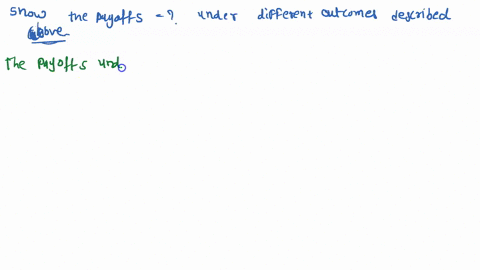 Show the payoffs =? under different outcomes described
above
The payoffs und